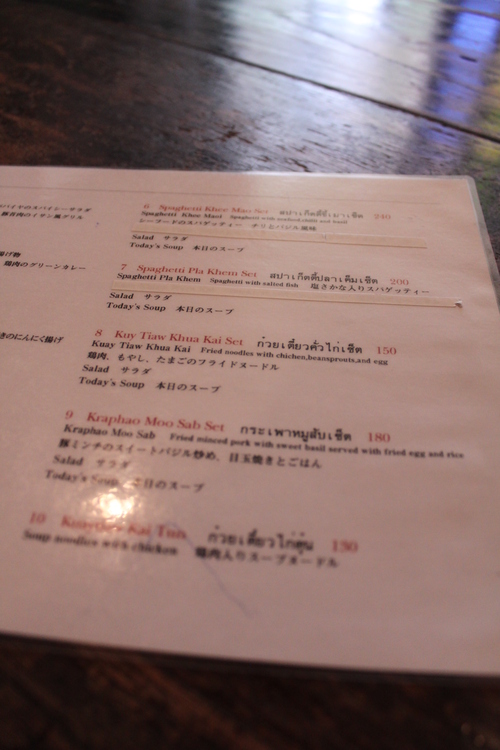 パパイヤのスパイシーサラダ
豚首肉のイサン風グリル
揚げ物
鶏肉のグリーンカレー
きのにんにく揚げ
6 Spaghetti Khee Mao Set สปาเก็ตตี้ขี้เมาเซ็ต 240
Spaghetti Khee Maot Spaghetti with seafood chilli and basil
シーフードのスパゲッティー チリとバジル風味
Salad サラダ
Today's Soup 本日のスープ
7 Spaghetti Pla Khem Set สปาเก็ตตี้ปลาเค็มเซ็ต 200
Spaghetti Pla Khem Spaghetti with salted fish 塩さかな入りスパゲッティー
Salad サラダ
Today's Soup 本日のスープ
8 Kuy Tiaw Khua Kai Set ก๋วยเตี๋ยวคั่วไก่เซ็ต 150
Kuay Tiaw Khua Kai Fried noodles with chichen,beansprouts,and egg
鶏肉、もやし、たまごのフライドヌードル
Salad サラダ
Today's Soup 本日のスープ
9 Kraphao Moo Sab Set กระเพาหมูสับเซ็ต 180
Kraphao Moo Sab Fried minced pork with sweet basil served with fried egg and rice
豚ミンチのスイートバジル炒め、目玉焼きとごはん
Salad サラダ
Today's Soup 本日のスープ
10 Kai Tun ก๋วยเตี๋ยวไก่ตุ๋น 130
Soup noodles with chicken 鶏肉入りスープヌードル